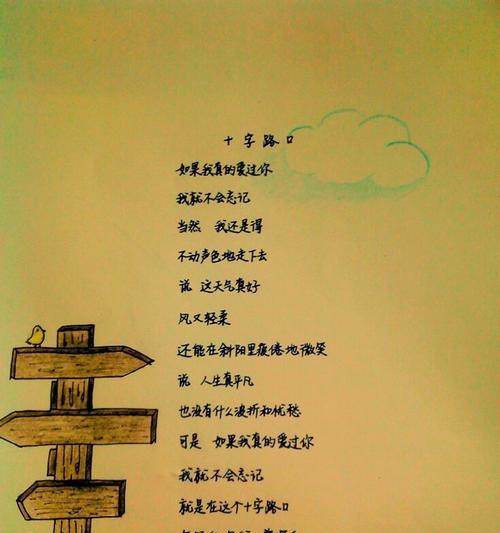 十字路口
如果我真的爱过你
我就不会忘记
当然 我还是得
不动声色地走下去
说 这天气真好
风又轻柔
还能在斜阳里疲倦地微笑
说 人生真平凡
也没有什么波折和忧愁
可是 如果我真的爱过你
我就不会忘记
就是在这个十字路口